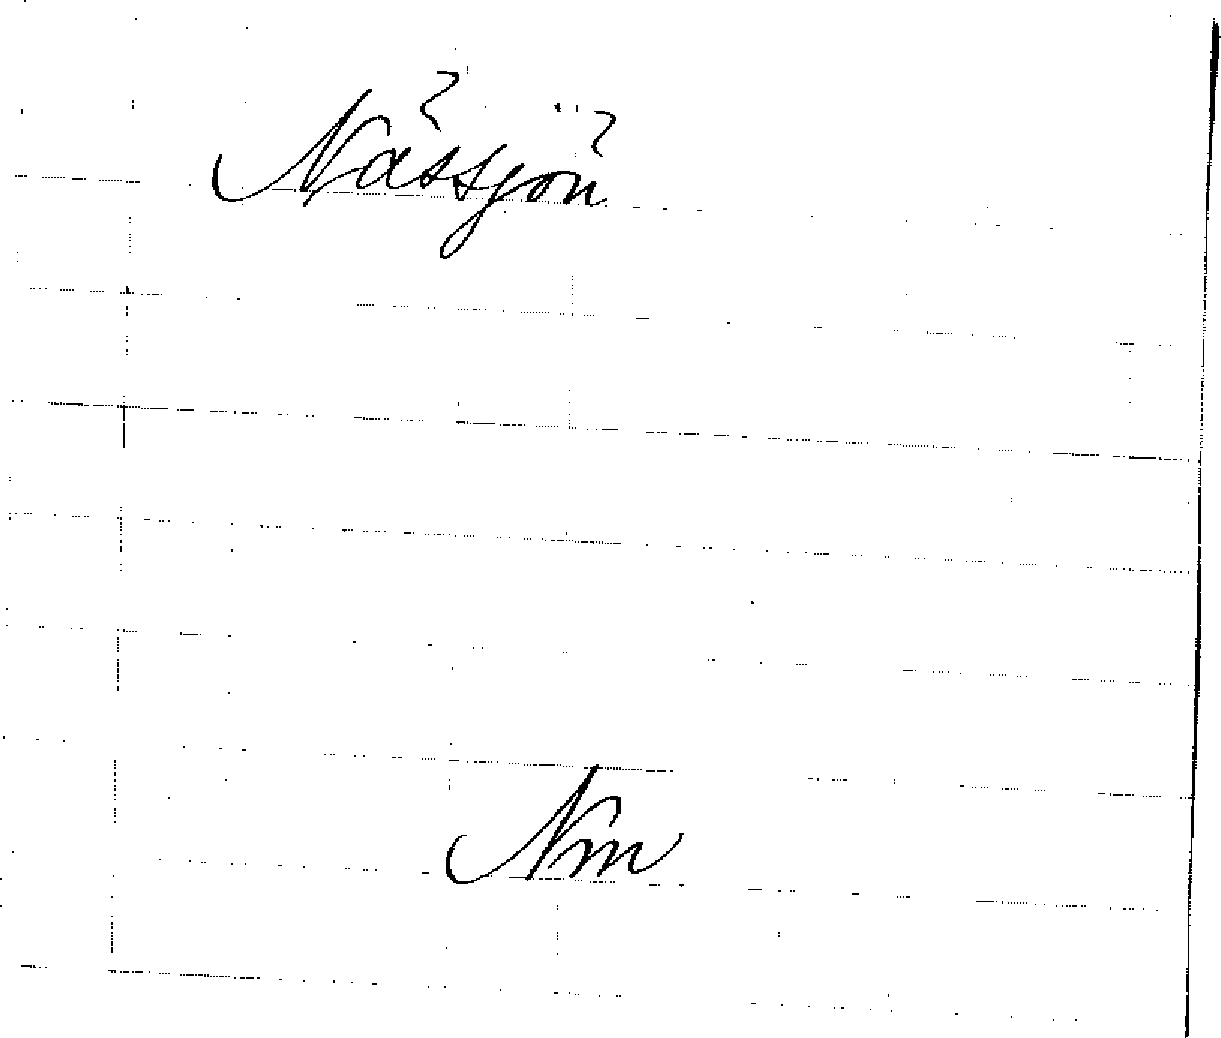 Nässjön
Nm